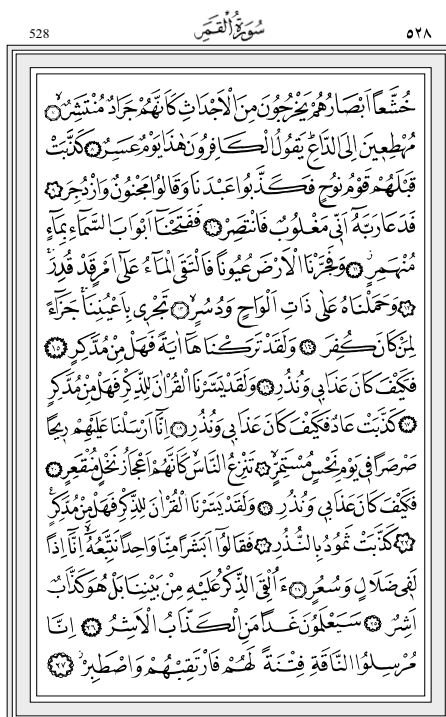 528 سُورَةُ الْقَمَرِ ٥٢٨
خُشَّعاً اَبْصَارُهُمْ يَخْرُجُونَ مِنَ الْاَجْدَاثِ كَاَنَّهُمْ جَرَادٌ مُنْتَشِرٌۙ ﴿٧﴾
مُهْطِعٖينَ اِلَى الدَّاعِۜ يَقُولُ الْكَافِرُونَ هٰذَا يَوْمٌ عَسِرٌ ﴿٨﴾ كَذَّبَتْ
قَبْلَهُمْ قَوْمُ نُوحٍ فَكَذَّبُوا عَبْدَنَا وَقَالُوا مَجْنُونٌ وَازْدُجِرَ ﴿٩﴾
فَدَعَا رَبَّهُٓ اَنّٖي مَغْلُوبٌ فَانْتَصِرْ ﴿١٠﴾ فَفَتَحْنَٓا اَبْوَابَ السَّمَٓاءِ بِمَٓاءٍ
مُنْهَمِرٍۘ ﴿١١﴾ وَفَجَّرْنَا الْاَرْضَ عُيُوناً فَالْتَقَى الْمَٓاءُ عَلٰٓى اَمْرٍ قَدْ قُدِرَۚ
﴿١٢﴾ وَحَمَلْنَاهُ عَلٰى ذَاتِ اَلْوَاحٍ وَدُسُرٍۙ ﴿١٣﴾ تَجْرٖي بِاَعْيُنِنَاۚ جَزَٓاءً
لِمَنْ كَانَ كُفِرَ ﴿١٤﴾ وَلَقَدْ تَرَكْنَاهَٓا اٰيَةً فَهَلْ مِنْ مُدَّكِرٍ ﴿١٥﴾
فَكَيْفَ كَانَ عَذَابٖي وَنُذُرِ ﴿١٦﴾ وَلَقَدْ يَسَّرْنَا الْقُرْاٰنَ لِلذِّكْرِ فَهَلْ مِنْ مُدَّكِرٍ
﴿١٧﴾ كَذَّبَتْ عَادٌ فَكَيْفَ كَانَ عَذَابٖي وَنُذُرِ ﴿١٨﴾ اِنَّٓا اَرْسَلْنَا عَلَيْهِمْ رٖيحاً
صَرْصَراً فٖي يَوْمِ نَحْسٍ مُسْتَمِرٍّۙ ﴿١٩﴾ تَنْزِعُ النَّاسَۙ كَاَنَّهُمْ اَعْجَازُ نَخْلٍ مُنْقَعِرٍ ﴿٢٠﴾
فَكَيْفَ كَانَ عَذَابٖي وَنُذُرِ ﴿٢١﴾ وَلَقَدْ يَسَّرْنَا الْقُرْاٰنَ لِلذِّكْرِ فَهَلْ مِنْ مُدَّكِرٍ۟
﴿٢٢﴾ كَذَّبَتْ ثَمُودُ بِالنُّذُرِ ﴿٢٣﴾ فَقَالُٓوا اَبَشَراً مِنَّا وَاحِداً نَتَّبِعُهُٓۙ اِنَّٓا اِذاً
لَفٖي ضَلَالٍ وَسُعُرٍ ﴿٢٤﴾ ءَاُلْقِيَ الذِّكْرُ عَلَيْهِ مِنْ بَيْنِنَا بَلْ هُوَ كَذَّابٌ
اَشِرٌ ﴿٢٥﴾ سَيَعْلَمُونَ غَداً مَنِ الْكَذَّابُ الْاَشِرُ ﴿٢٦﴾ اِنَّا
مُرْسِلُوا النَّاقَةِ فِتْنَةً لَهُمْ فَارْتَقِبْهُمْ وَاصْطَبِرْۘ ﴿٢٧﴾